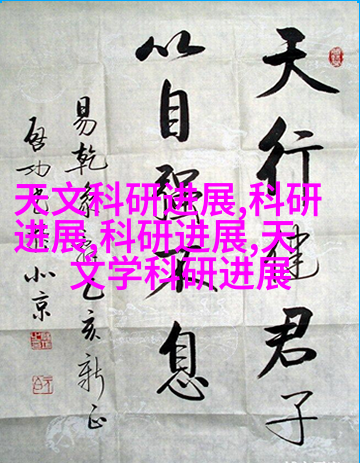 天行健君子
以自强不息
易乾象辞乙亥新正
启功书于北京
天文科研进展,科研
进展,科研进展,天
文学科研进展